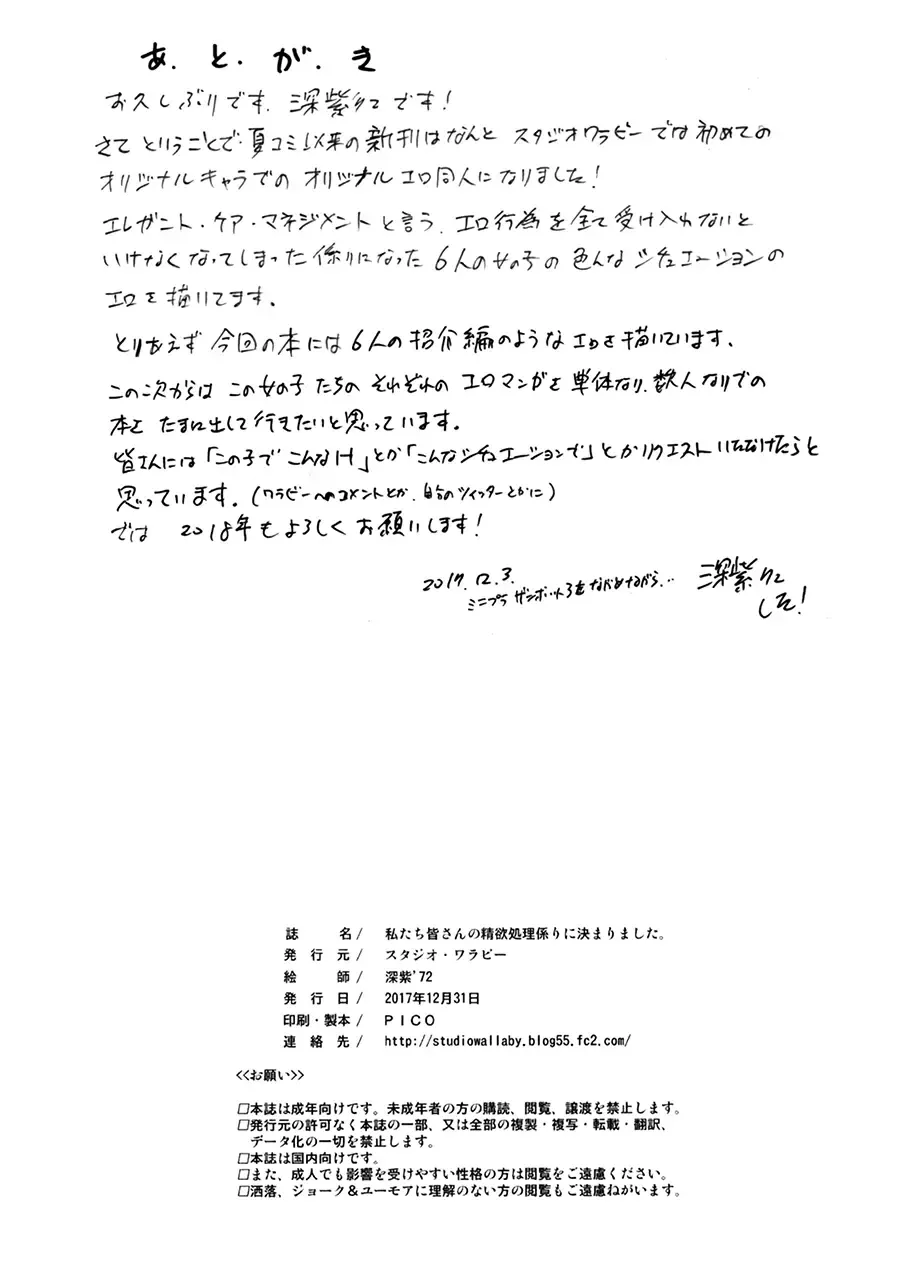 あ.と.が.き
お久しぶりです.深紫'72です!
さてということで.夏コミ以来の新刊はなんと スタジオワラビーでは初めての
オリジナルキャラでの オリジナルエロ同人になりました!
エレガント・ケア・マネジメントと言う.エロ行為を全て受け入れないと
いけなくなってしまった係りになった6人の女の子の色んなシチュエーションの
エロを描いてます.
とりあえず今回の本には6人の紹介編のようなエロを描いています.
この次からは この女の子たちの それぞれの エロマンガを単体なり.数人なりでの
本を たまに出して行きたいと思っています.
皆さんには「この子でこんなH」とか「こんなシチュエーションで」とかリクエストいただけたらと
思っています.(ワラビーへのコメントとか.自分のツイッターとかに)
では 2018年もよろしくお願いします!
2017.12.3.
ミニプラ ザンボット3をながめながら...
深紫'72
でした!
誌 名/ 私たち皆さんの精欲処理係りに決まりました。
発 行 元/ スタジオ・ワラビー
絵 師/ 深紫'72
発 行 日/ 2017年12月31日
印刷・製本/ PICO
連 絡 先/ http://studiowallaby.blog55.fc2.com/
<<お願い>>
□本誌は成年向けです。未成年者の方の購読、閲覧、譲渡を禁止します。
□発行元の許可なく本誌の一部、又は全部の複製・複写・転載・翻訳、
データ化の一切を禁止します。
□本誌は国内向けです。
□また、成人でも影響を受けやすい性格の方は閲覧をご遠慮ください。
□洒落、ジョーク&ユーモアに理解のない方の閲覧もご遠慮ねがいます。